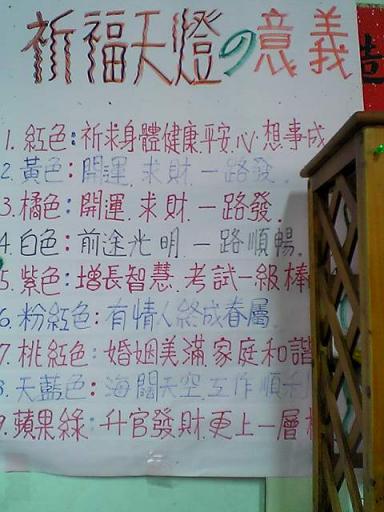 祈福天燈の意義
1. 紅色:祈求身體健康.平安.心想事成
2. 黃色:開運.求財.一路發.
3. 橘色:開運.求財.一路發.
4. 白色:前途光明.一路順暢.
5. 紫色:增長智慧.考試一級棒
6. 粉紅色:有情人終成眷屬.
7. 桃紅色:婚姻美滿.家庭和諧
8. 天藍色:海闊天空.工作順利
9. 蘋果綠:升官發財.更上一層
造